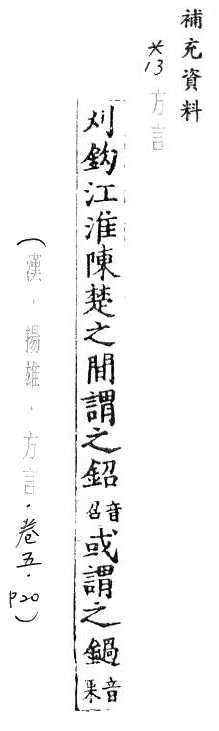 補充資料
*13 方言
刈鉤江淮陳楚之間謂之鉊音召或謂之鍋音果
(漢．揚雄．方言．卷五．P20)